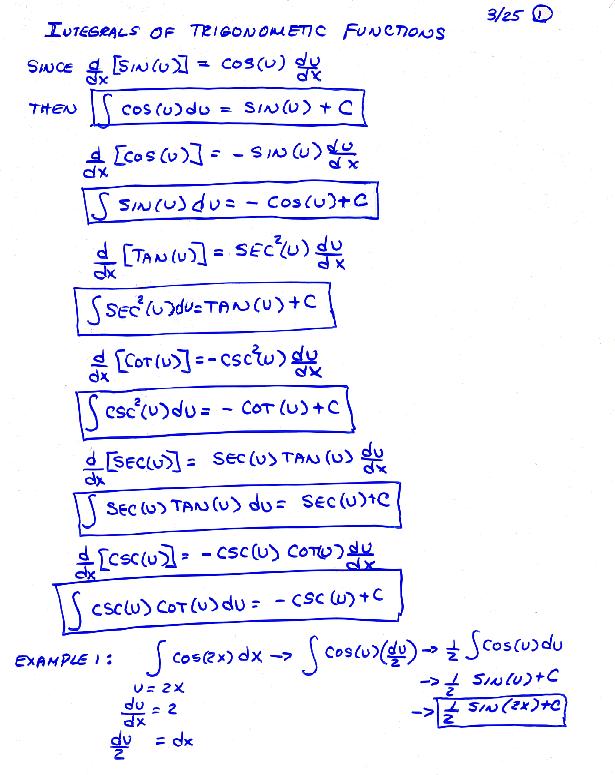 3/25 ①
INTEGRALS OF TRIGONOMETIC FUNCTIONS
SINCE d/dx [SIN(U)] = COS(U) du/dx
THEN ∫ COS(U)dU = SIN(U) + C
d/dx [COS(U)] = - SIN(U) du/dx
∫ SIN(U) dU = - COS(U)+C
d/dx [TAN(U)] = SEC²(U) du/dx
∫ SEC²(U)dU=TAN(U)+C
d/dx [COT(U)] =-CSC²(U) du/dx
∫ CSC²(U)dU = - COT(U)+C
d/dx [SEC(U)] = SEC(U) TAN(U) du/dx
∫ SEC(U) TAN(U) dU = SEC(U)+C
d/dx [CSC(U)] = -CSC(U) COT(U) du/dx
∫ CSC(U) COT(U)dU = -CSC(U)+C
EXAMPLE 1: ∫ COS(2X) dX -> ∫ COS(U)(du/2) -> 1/2 ∫ COS(U)dU
U = 2X -> 1/2 SIN(U)+C
du/dx = 2 -> 1/2 SIN(2X)+C
du/2 = dx